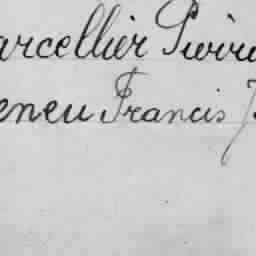 arcellier Pierre
eneu Francis J